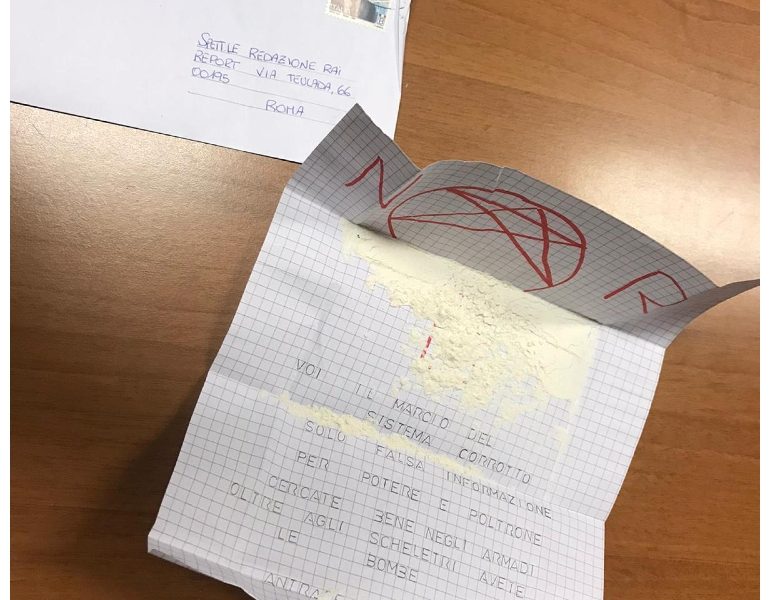 SPETT.LE REDAZIONE RAI
REPORT VIA TEULADA, 66
00195
ROMA
N R
VOI IL MARCIO DEL
SISTEMA CORROTTO
SOLO FALSA INFORMAZIONE
PER POTERE E POLTRONE
CERCATE BENE NEGLI ARMADI
OLTRE AGLI SCHELETRI AVETE
LE BOMBE